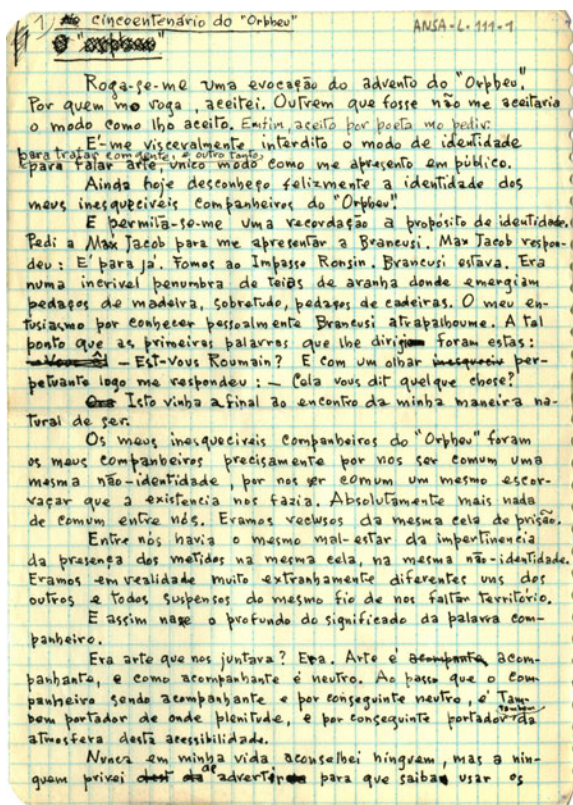 1) Cincoentenário do "Orpheu"
ANSA-L-111-1
Roga-se-me uma evocação do advento do "Orpheu".
Por quem mo roga, aceitei. Outrem que fosse não me aceitaria
o modo como lho aceito. Emfim, aceito por poeta mo pedir.
E'-me visceralmente interdito o modo de identidade
para tratar com gente, e outro tanto,
para falar arte, unico modo como me apresento em público.
Ainda hoje desconheço felizmente a identidade dos
meus inesqueciveis companheiros do "Orpheu".
E permita-se-me uma recordação a propósito de identidade.
Pedi a Max Jacob para me apresentar a Brancusi. Max Jacob respon-
deu: E' para já. Fomos ao Impasse Ronsin. Brancusi estava. Era
numa incrivel penumbra de teias de aranha donde emergiam
pedaços de madeira, sobretudo, pedaços de cadeiras. O meu en-
tusiasmo por conhecer pessoalmente Brancusi atrapalhoume. A tal
ponto que as primeiras palavras que lhe dirigi foram estas:
— Est-Vous Roumain? E com um olhar per-
petuante logo me respondeu: — Cela vous dit quelque chose?
Isto vinha afinal ao encontro da minha maneira na-
tural de ser.
Os meus inesqueciveis companheiros do "Orpheu" foram
os meus companheiros precisamente por nos ser comum uma
mesma não-identidade, por nos ser comum um mesmo escor-
raçar que a existencia nos fazia. Absolutamente mais nada
de comum entre nós. Eramos reclusos da mesma cela de prisão.
Entre nós havia o mesmo mal-estar da impertinencia
da presença dos metidos na mesma cela, na mesma não-identidade.
Eramos em realidade muito extranhamente diferentes uns dos
outros e todos suspensos do mesmo fio de nos faltar território.
E assim nasce o profundo do significado da palavra com-
panheiro.
Era arte que nos juntava? Era. Arte é acom-
panhante, e como acompanhante é neutro. Ao passo que o com-
panheiro sendo acompanhante e por conseguinte neutro, é Tam-
também
bem portador de onde plenitude, e por conseguinte portador da
atmosfera desta acessibilidade.
Nunca em minha vida aconselhei ninguem, mas a nin-
guem privei de advertir para que saiba usar os